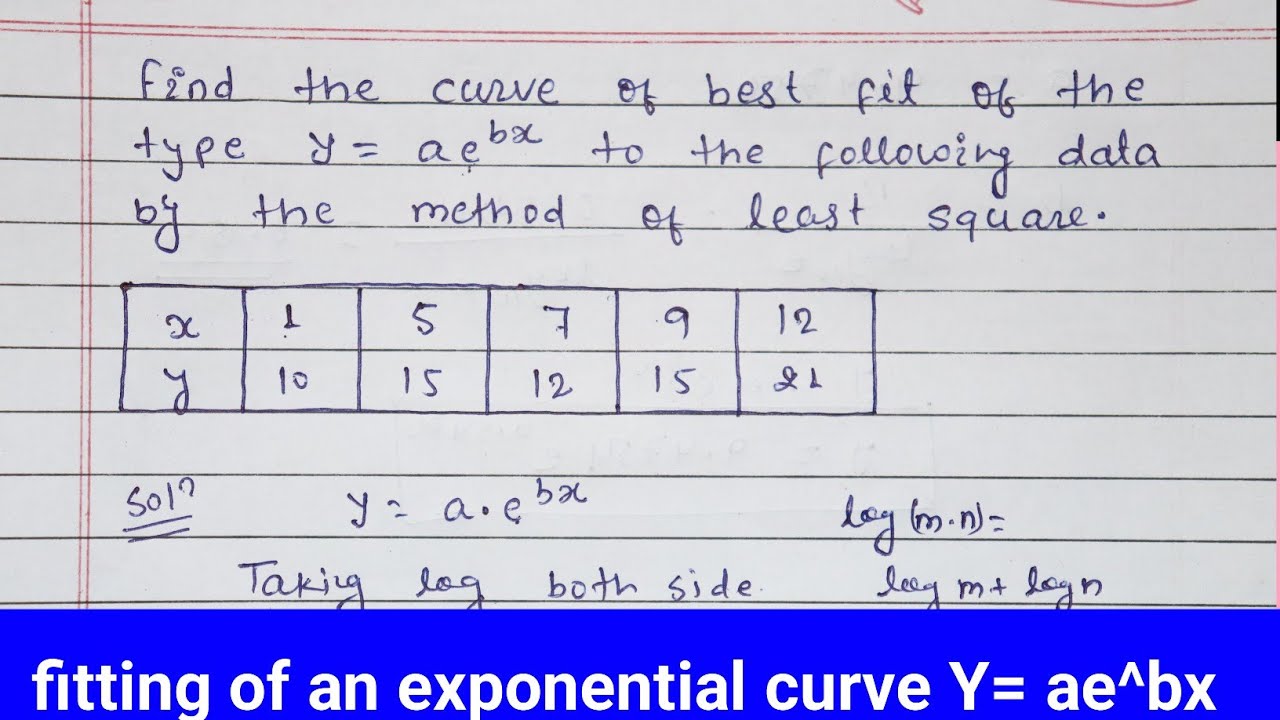 Find the curve of best fit of the
type y = ae^bx to the following data
by the method of least square.
x 1 5 7 9 12
y 10 15 12 15 21
Solⁿ y = a.e^bx log (m.n) =
Taking log both side. log m + log n
fitting of an exponential curve Y= ae^bx